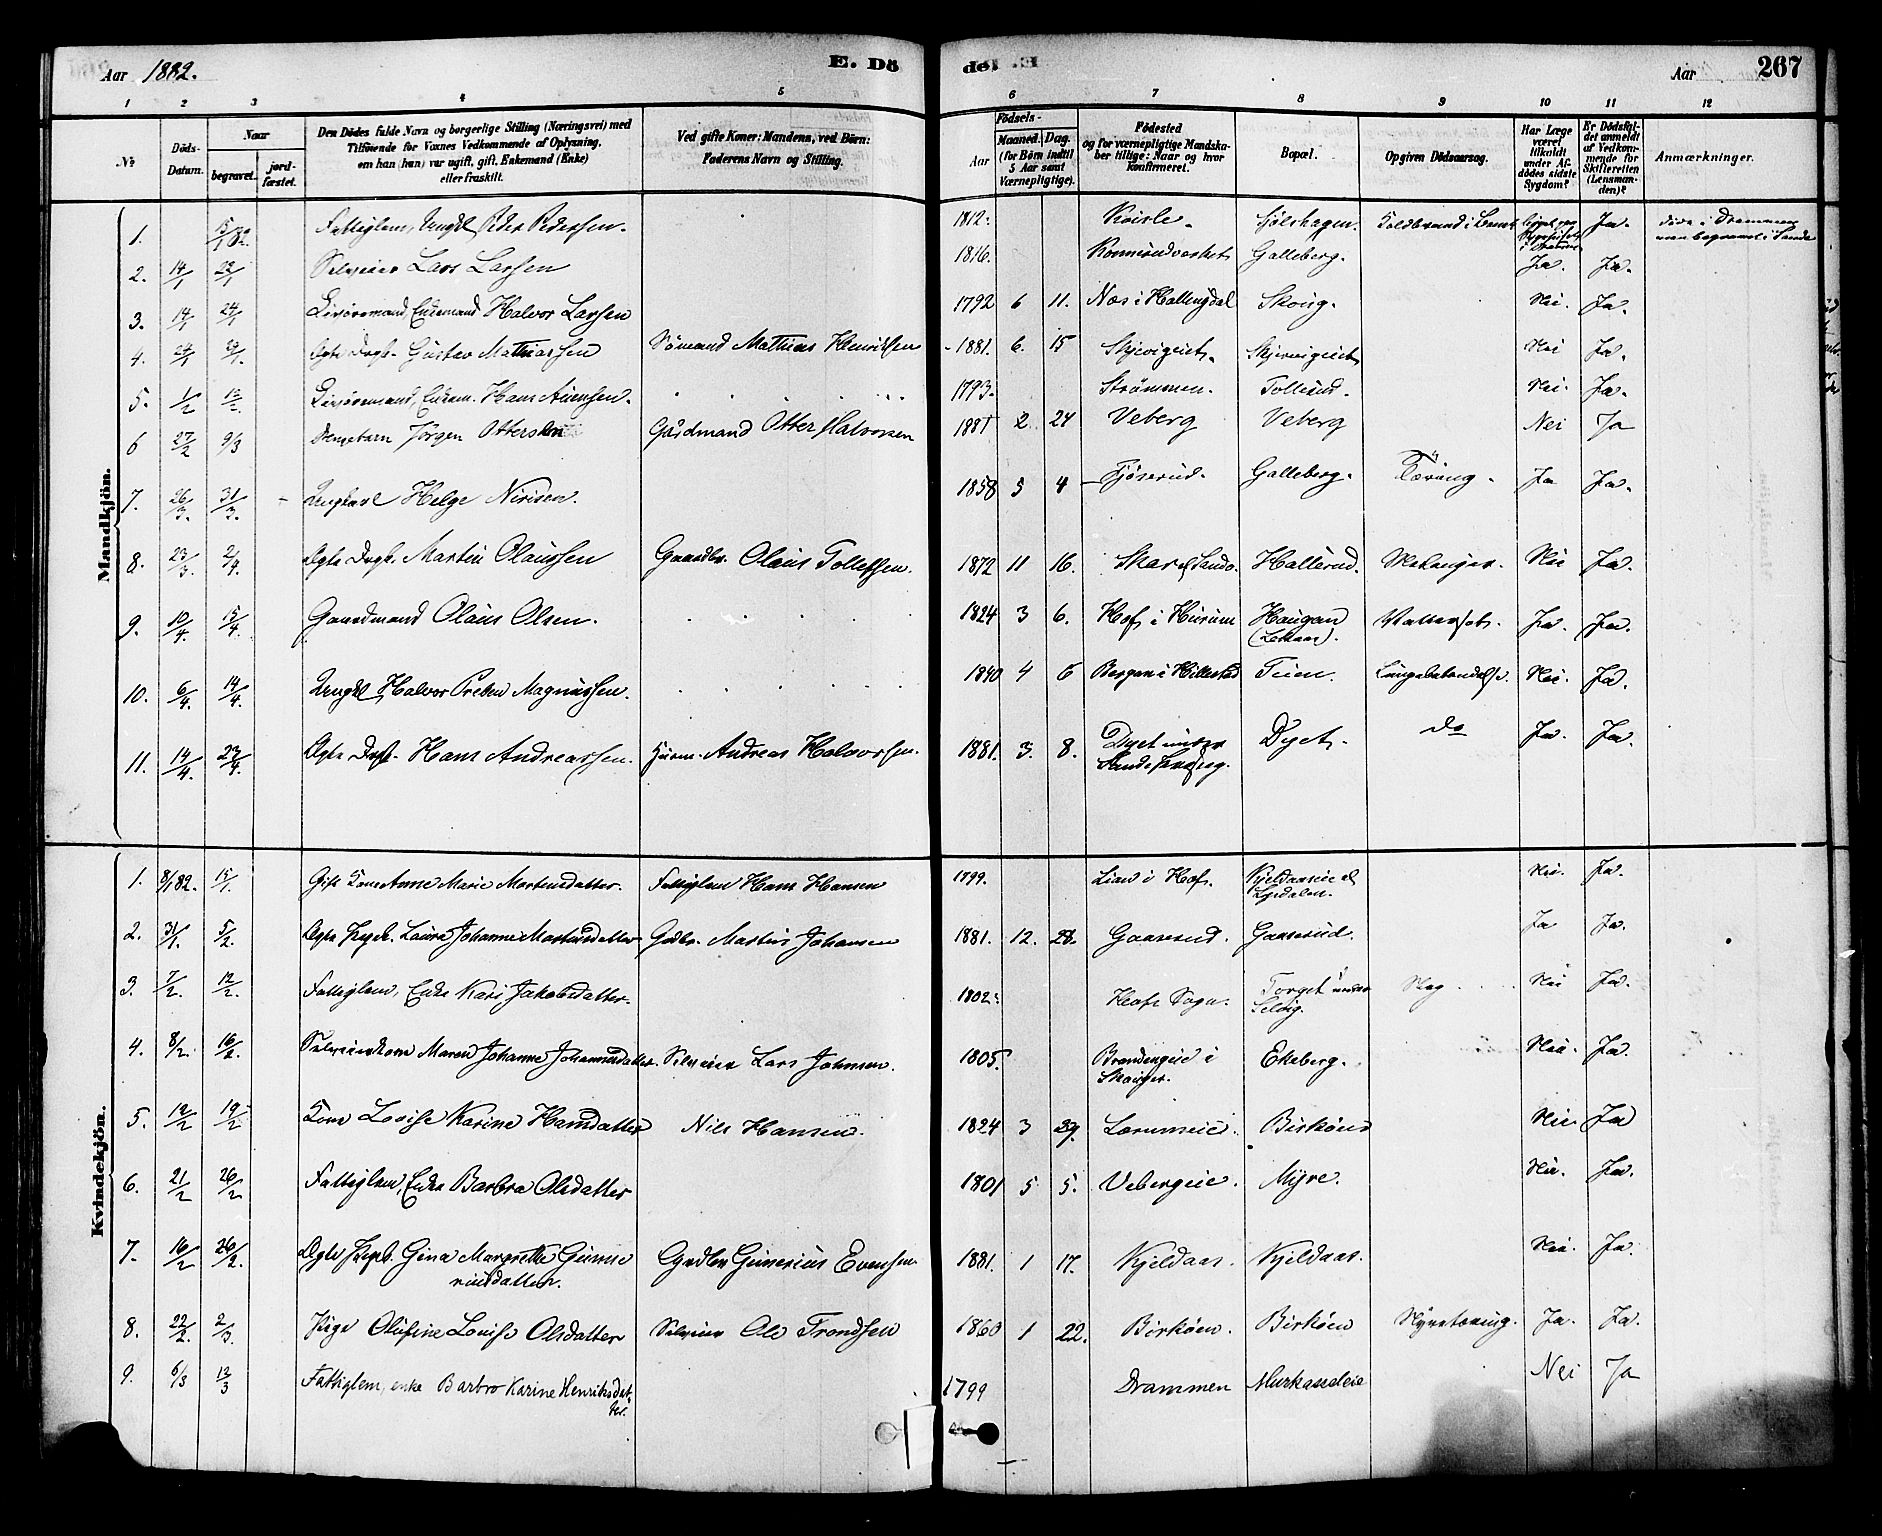 Aar 1882.
E. Dö
del E.
Aar
267
1 2 3 4 5 6 7 8 9 10 11 12
No
Döds-Datum.
Naar
begravet.
jord-fæstet.
Den Dödes fulde Navn og borgerlige Stilling (Næringsvei) med
Tilföiende for Voxnes Vedkommende af Oplysning,
om han (hun) var ugift, gift, Enkemand (Enke)
eller fraskilt.
Ved gifte Koner: Mandens, ved Börn:
Faderens Navn og Stilling.
Födsels-
Aar
Maaned. Dag.
(for Börn indtil
5 Aar samt
Værnepligtige).
Födested
og for værnepligtige Mandska-
ber tillige: Naar og hvor
konfirmeret.
Bopæl.
Opgiven Dödsaarsag.
Har Læge
været
tilkaldt
under Af-
dödes sidste
Sygdom?
Er Dödsfal-
det anmeldt
af Vedkom-
mende for
Skifteretten
(Lensman-
den)?
Anmærkninger.
Mandkjön.
1. 15/1 82. Fattiglem, Ungkl Peder Pedersen. 1812. Sjølshagen. Koldbrand i Benet Ja. döde i Drammen
men begravet i Sande
2. 14/1 22/1 Selveier Lars Larsen 1816. Galleberg. Ja. Ja.
3. 14/1 24/1 Enkemand Halvor Larsen 1792 6 11. Næs i Hallingdal Skoug. Nei. Ja.
4. Ægte Drgb. Gustav Mathiassen Sömand Mathias Henriksen 1881. 6. 15 Skjervigeiet. Nei Ja.
5. 1/2 12/2 Enkem. Hans 1793. Strømmen. Tollerud. Nei. Ja.
6 27/2 9/3 Drengebarn Jörgen Ottersen Gårdmand Otter Halvorsen 1881 2 24 Veberg Veberg Nei Ja
7. 26/3. 31/3. Ungkarl Helge Nirisen. 1858 5 4 Tjöserud. Galleberg. Tæring. Ja Ja.
8. 23/3. 2/4 Ægte Drgb. Martin Olaussen Gaardbr. Olaus Tollefsen. 1872 11 16. Skar Sande. Hallerud. Nei Ja.
9. 10/4. 15/4. Gaardmand Olaus Olsen. 1824 3 6. Hof i Hurum Haugan Vattersot. Ja. Ja.
10. 6/4. 14/4. Ungkl Halvor Preben Magnussen. 1840 4 6 Bergan i Hillestad Tuen. Lungebetændelse. Nei. Ja.
11. 14/4. 23/4. Ægte Drgb. Hans Andreassen. Husm. Andreas Halvorsen. 1881. 3. 8. Dyet under Dyet. do Ja. Ja.
Kvindekjön.
1. 8/1 82. 15/1. Gift Kone Anne Marie Mortensdatter. Fattiglem Hans Hansen 1799. Lian i Hof. Nei. Ja.
2. 31/1. 5/2. Ægte Pigeb. Laura Johanne Martinsdatter Gdbr. Martin Johansen 1881. 12. 28. Gaaserud. Gaaserud. Ja Ja.
3. 7/2. 12/2. Fattiglem, Enke Kari Jakobsdatter. 1802. Hofs Sogn. Torget under
Selvig. Nei Ja.
4. 8/2. 16/2. Selveierkone Maren Johanne Johannesdatter. Selveier Lars Johnsen. 1805. Brandengeie i
Skouger. Ekeberg. Nei. Ja.
5. 12/2 19/2 Kone Lovise Karine Hansdatter Nils Hansen. 1824 3 29. Lerumeie. Birköen Nei Ja
6. 21/2 26/2 Fattiglem, Enke Barbra Olsdatter 1801 5 5. Vebergeie. Myre. Nei. Ja.
7. 16/2 26/2. Ægte Pigeb. Gina Margrethe Gune-
riusdatter. Gårdbr Gunerius Evensen. 1881. 1 17. Kjeldaas. Kjeldaas. Nei. Ja.
8. 22/2. 2/3. Pige Olufine Lovise Olsdatter Selveier Ole Trondsen 1860 1 22. Birköen. Birköen Nyretæring. Ja. Ja.
9. 6/3 12/3 Fattiglem, enke Barbro Karine Henriksdat-
ter. 1799 Drammen Murkasseleie Nei Ja